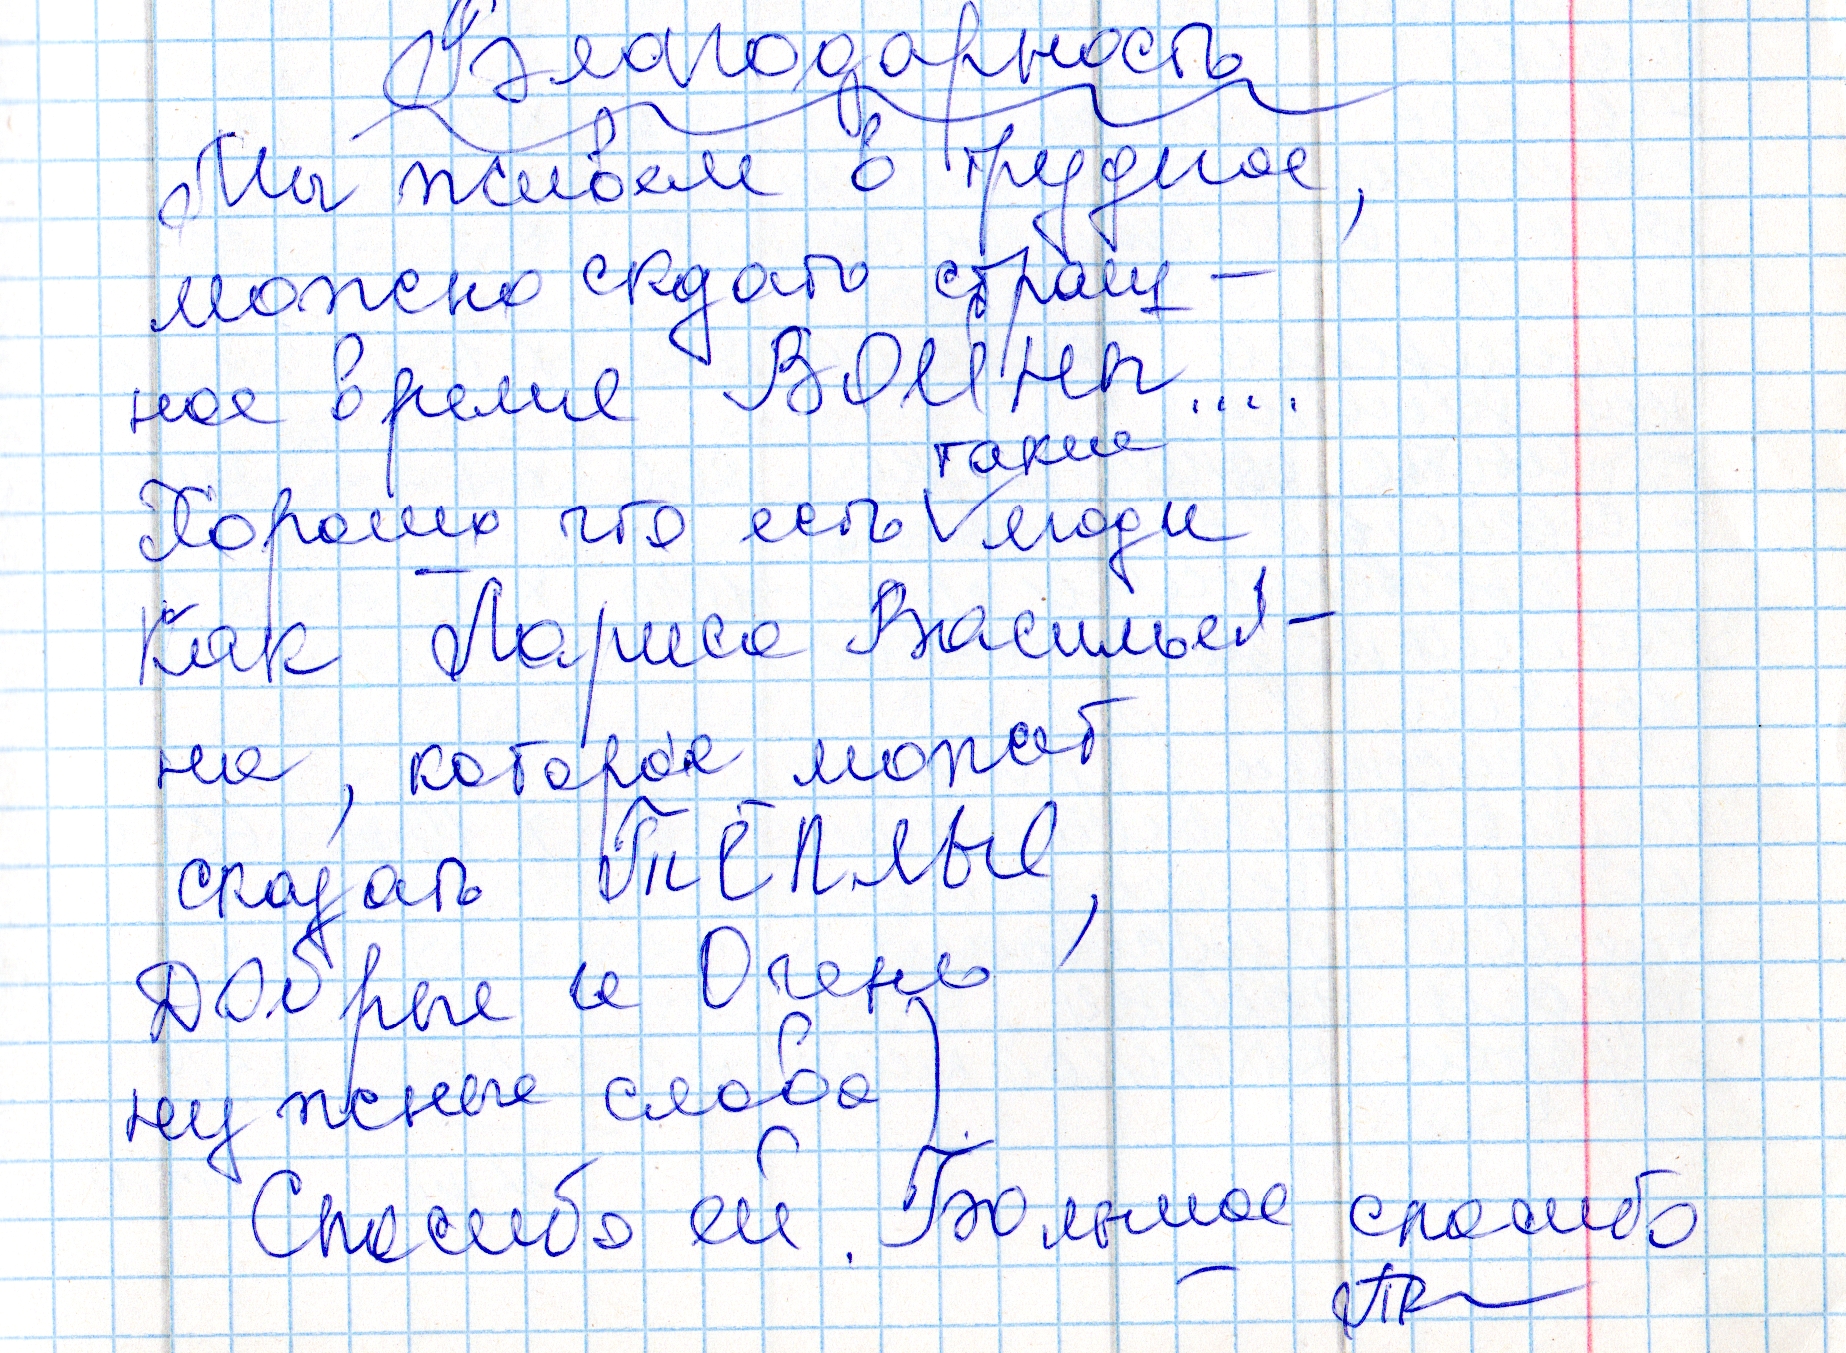 Благодарность
Мы живем в трудное,
можно сkдать страш-
ное время ВОЙНЫ....
такие
Хорошо что есть люди
как Лариса Васильев-
на, которае можат
сказать ТЁПЛЫЕ,
Добрые и Очень
нужные слова).
Спасибо ей. Большое спасибо